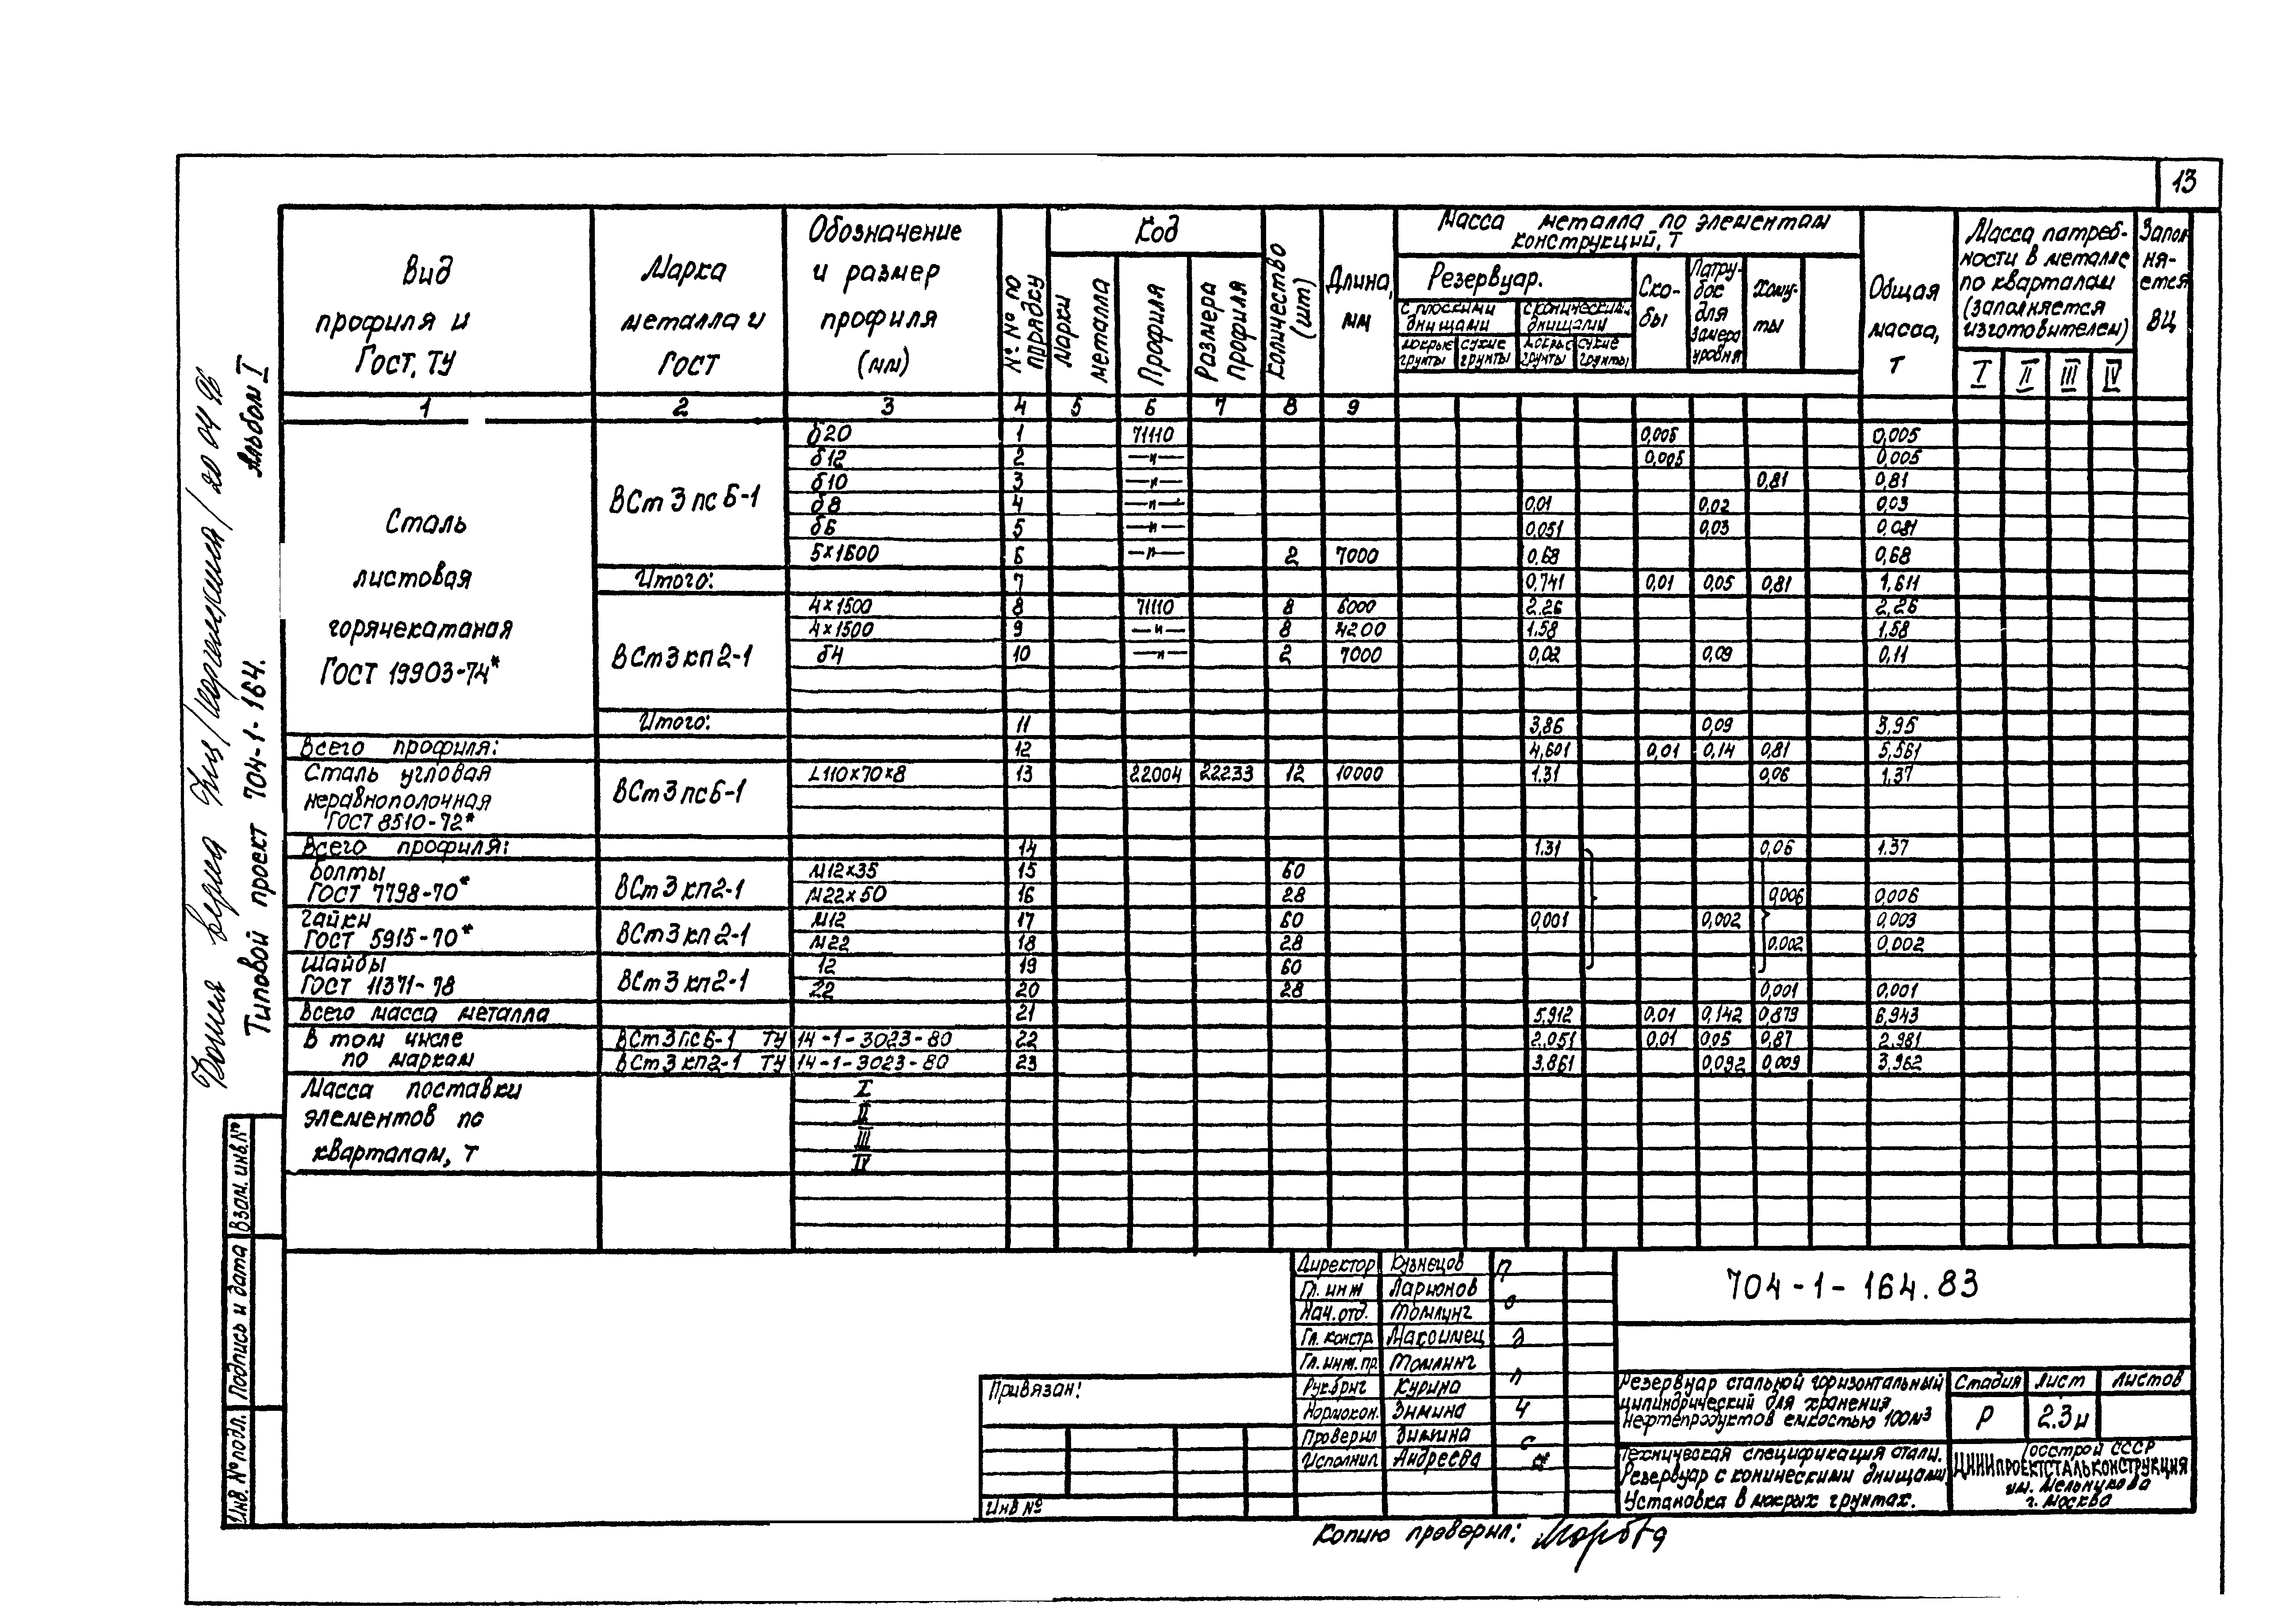 13
Вид профиля и Гост, ТУ
Марка металла и ГОСТ
Обозначение и размер профиля (мм)
№№ по порядку
Код
Марки металла
Профиля
Размера профиля
Количество (шт)
Длина, мм
Масса металла по элементам конструкций, Т
Резервуар.
с плоскими днищами
с коническим. днищами
мокрые грунты
сухие грунты
мокрые грунты
сухие грунты
Ско-бы
Патру-бок для замера уровня
Хому-ты
Общая масса, т
Масса патреб-ности в металле по кварталам (заполняется изготовителем)
I II III IV
Запол-ня-ется ВЦ
1 2 3 4 5 6 7 8 9
Сталь листовая горячекатаная ГОСТ 19903-74*
ВСт3пс6-1
δ20 1 71110 0,005 0,005
δ12 2 —"— 0,005 0,005
δ10 3 —"— 0,81 0,81
δ8 4 —"— 0,01 0,02 0,03
δ6 5 —"— 0,051 0,03 0,081
5×1600 6 —"— 2 7000 0,68 0,68
Итого: 7 0,741 0,01 0,05 0,81 1,611
ВСт3кп2-1
4×1500 8 71110 8 6000 2.26 2.26
4×1500 9 —"— 8 4200 1.58 1.58
δ4 10 —"— 2 7000 0,02 0,09 0,11
Итого: 11 3,86 0,09 3,95
Всего профиля: 12 4,601 0,01 0,14 0,81 5,561
Сталь угловая неравнополочная ГОСТ 8510-72*
ВСт3пс6-1
L110×70×8 13 22004 22233 12 10000 1.31 0,06 1,37
Всего профиля: 14 1.31 0,06 1.37
Болты ГОСТ 7798-70*
ВСт3кп2-1
М12×35 15 60
М22×50 16 28 0,006 0,006
Гайки ГОСТ 5915-70*
ВСт3кп2-1
М12 17 60 0,001 0,002 0,003
М22 18 28 0.002 0,002
Шайбы ГОСТ 11371-78
ВСт3кп2-1
12 19 60
22 20 28 0,001 0,001
Всего масса металла 21 5,912 0.01 0,142 0,879 6,943
В том числе по маркам
ВСт3пс6-1 ТУ 14-1-3023-80 22 2.051 0.01 0,05 0,87 2.981
ВСт3кп2-1 ТУ 14-1-3023-80 23 3.861 0,092 0,009 3,962
Масса поставки элементов по кварталам, т
I
II
III
IV
Альбом I
Типовой проект 704-1-164.
Взам. инв.№
Подпись и дата
Инв. № подл.
Привязан:
Инв №
Директор Кузнецов
Гл. инж Ларионов
Нач.отд. Томлинг
Гл. констр Максимец
Гл. инж. пр Томлинг
Рук.бриг Курина
Нормокон. Зимина
Проверил Зимина
Исполнил Андреева
704-1-164.83
Резервуар стальной горизонтальный цилиндрический для хранения нефтепродуктов емкостью 100м³
Стадия Лист Листов
Р 2.3и
Техническая спецификация стали. Резервуар с коническими днищами Установка в мокрых грунтах.
Госстрой СССР
ЦНИИПРОЕКТСТАЛЬКОНСТРУКЦИЯ
им. Мельникова
г. Москва
Копию проверил: